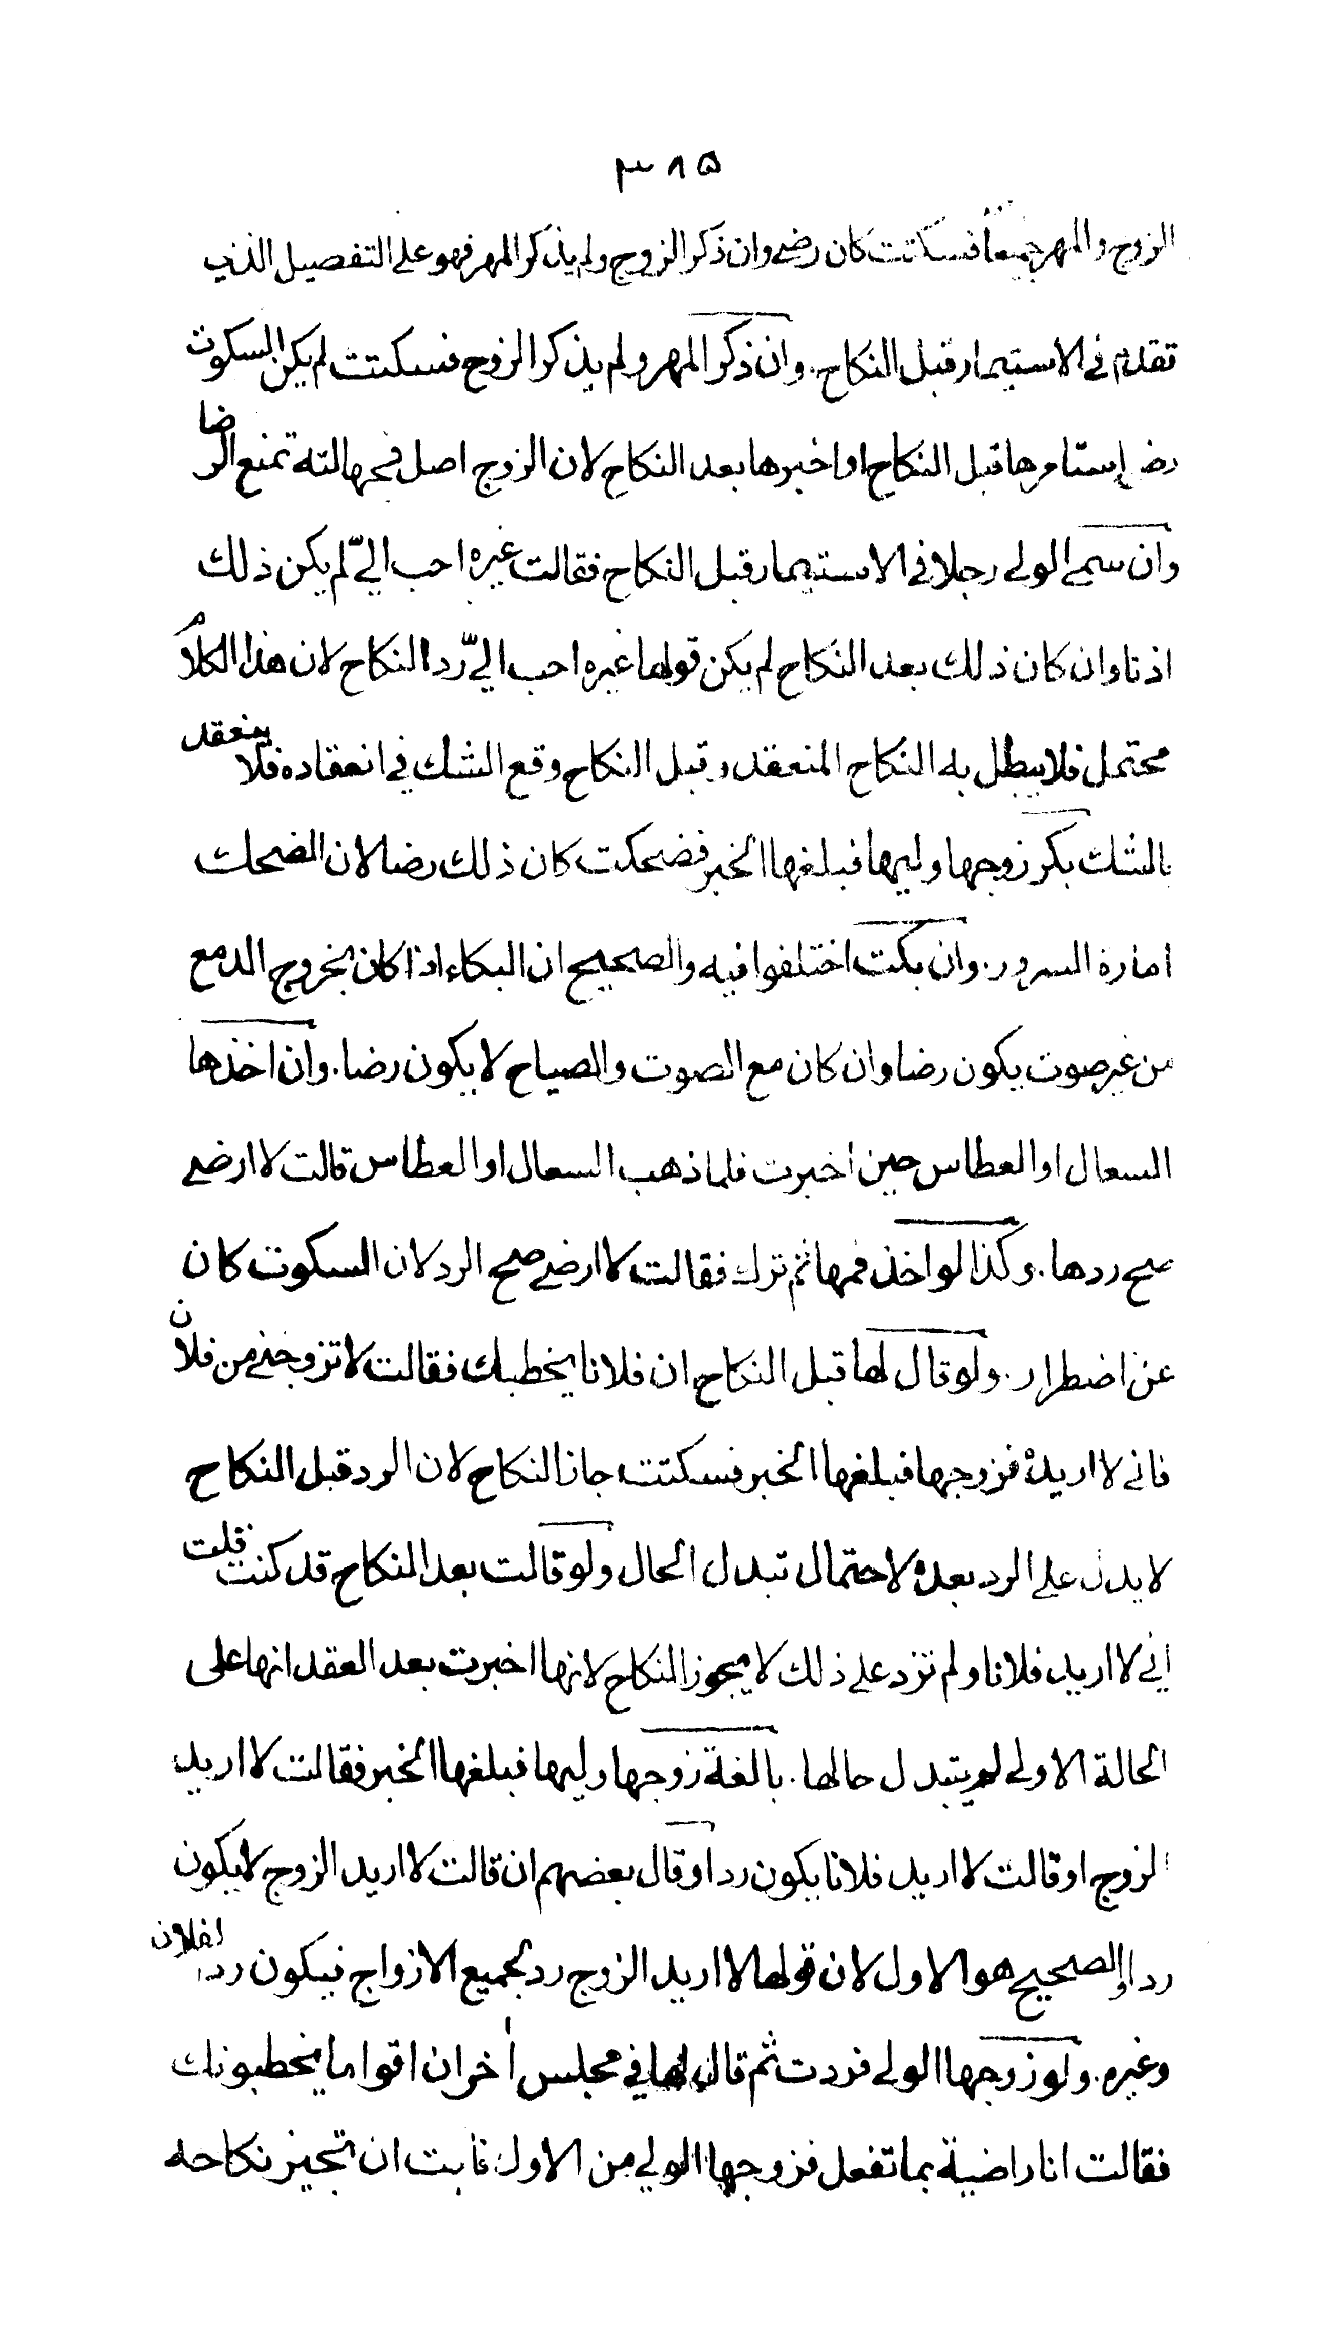 ٣٨٥
الزوج والمهر جميعا فسكتت كان رضى وان ذكر الزوج ولم يذكر المهر فهو على التفصيل الذى
تقدم فى الاستيمار قبل النكاح. وان ذكر المهر ولم يذكر الزوج فسكتت لم يكن السكوت
رضا إستامرها قبل النكاح او اخبرها بعد النكاح لان الزوج اصل فجهالته تمنع الرضا
وان سمى الولى رجلا فى الاستيمار قبل النكاح فقالت غيره احب الىّ لم يكن ذلك
اذنا وان كان ذلك بعد النكاح لم يكن قولها غيره احب الىّ ردا النكاح لان هذا الكلام
محتمل فلا يبطل به النكاح المنعقد وقبل النكاح وقع الشك فى انعقاده فلا ينعقد
بالشك بكر زوجها وليها فبلغها الخبر فضحكت كان ذلك رضا لان الضحك
امارة السرور. وان بكت اختلفوا فيه والصحيح ان البكاء اذا كان بخروج الدمع
من غير صوت يكون رضا وان كان مع الصوت والصياح لا يكون رضا. وان اخذها
السعال او العطاس حين اخبرت فلما ذهب السعال او العطاس قالت لا ارضى
صح ردها. وكذا لو اخذ فمها ثم ترك فقالت لا ارضى صح الرد لان السكوت كان
عن اضطرار. ولو قال لها قبل النكاح ان فلانا يخطبك فقالت لا تزوجنى من فلان
فانى لا اريده فزوجها فبلغها الخبر فسكتت جاز النكاح لان الرد قبل النكاح
لا يدل على الرد بعده لاحتمال تبدل الحال ولو قالت بعد النكاح قد كنت قلت
انى لا اريد فلانا ولم تزد على ذلك لا يجوز النكاح لانها اخبرت بعد العقد انها على
الحالة الاولى لم يتبدل حالها. بالغة زوجها وليها فبلغها الخبر فقالت لا اريد
الزوج او قالت لا اريد فلانا يكون ردا وقال بعضهم ان قالت لا اريد الزوج لا يكون
ردا والصحيح هو الاول لان قولها لا اريد الزوج رد لجميع الازواج فيكون ردا لفلان
وغيره. ولو زوجها الولى فردت ثم قال لها فى مجلس اخر ان اقواما يخطبونك
فقالت انا راضية بما تفعل فزوجها الولى من الاول فابت ان تجيز نكاحه